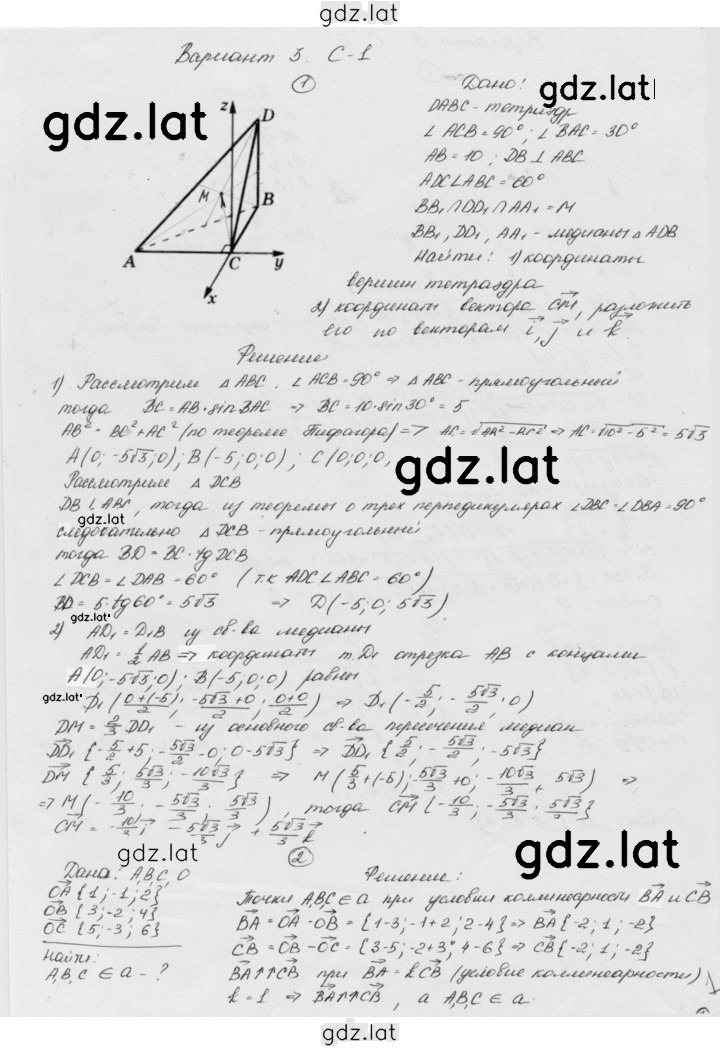 gdz.lat
Вариант 3. С-1
①
gdz.lat
z
D
M
B
A
C
y
x
Дано:
gdz.lat
DABC - тетраэдр
∠ ACB = 90°; ∠ BAC = 30°
AB = 10; DB ⊥ ABC
ADC∠ABC = 60°
BB₁ ∩ DD₁ ∩ AA₁ = M
BB₁, DD₁, AA₁ - медианы △ ADB
Найти: 1) координаты
вершин тетраэдра
2) координаты вектора CM, разложить
его по векторам i, j и k.
Решение
1) Рассмотрим △ ABC. ∠ ACB = 90° ⇒ △ ABC - прямоугольный
тогда BC = AB·sin BAC ⇒ BC = 10·sin 30° = 5
AB² = BC² + AC² (по теореме Пифагора) ⇒ AC = √AB² - BC² ⇒ AC = √10² - 5² = 5√3
A(0; -5√3; 0); B(-5; 0; 0); C(0; 0; 0,
gdz.lat
Рассмотрим △ DCB
DB ⊥ ABC, тогда из теоремы о трех перпендикулярах ∠DBC = ∠DBA = 90°
gdz.lat
следовательно △ DCB - прямоугольный
тогда BD = BC · tg DCB
∠ DCB = ∠ DAB = 60° (т.к ADC∠ABC = 60°)
BD = 5·tg 60° = 5√3 ⇒ D(-5; 0; 5√3)
gdz.lat
2) AD₁ = D₁B из св-ва медианы
AD₁ = 1/2 AB ⇒ координаты т. D₁ отрезка AB с концами
A(0; -5√3; 0); B(-5; 0; 0) равны
gdz.lat
D₁ (0+(-5)/2; -5√3+0/2; 0+0/2) ⇒ D₁(-5/2; -5√3/2; 0)
DM = 2/3 DD₁ - из основного св-ва пересечения медиан
DD₁ {-5/2 + 5; -5√3/2 - 0; 0 - 5√3} ⇒ DD₁ {5/2; -5√3/2; -5√3}
DM {5/3; 5√3/3; -10√3/3} ⇒ M(5/3 + (-5); -5√3/3 + 0; -10√3/3 + 5√3) ⇒
⇒ M(-10/3; -5√3/3; 5√3/3), тогда CM {-10/3; -5√3/3; 5√3/3}
CM = -10/3 i - 5√3/3 j + 5√3/3 k
②
gdz.lat
Дано: A, B, C, O
OA {1; -1; 2}
OB {3; -2; 4}
OC {5; -3; 6}
Найти:
A, B, C ∈ a - ?
Решение:
Точки A, B, C ∈ a при условии коллинеарности BA и CB
BA = OA - OB = {1-3; -1+2; 2-4} ⇒ BA{-2; 1; -2}
CB = OB - OC = {3-5; -2+3; 4-6} ⇒ CB{-2; 1; -2}
BA⇈CB при BA = k CB (условие коллинеарности)
k = 1 ⇒ BA⇈CB, а A, B, C ∈ a.
gdz.lat